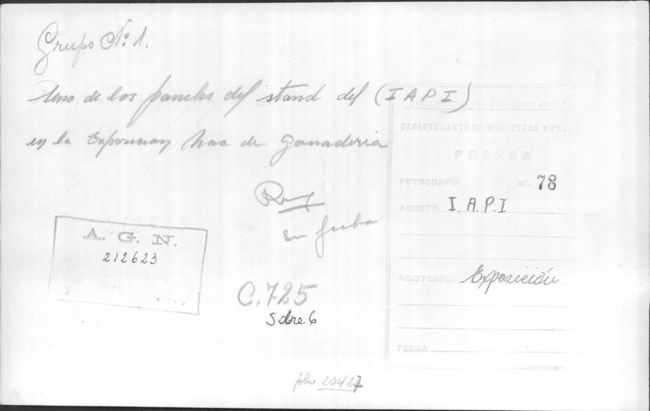 Grupo No. 1.
Uno de los paneles del stand del (IAPI)
en la Exposicion Nac de Ganaderia
DEPARTAMENTO DE BIBLIOTECA Y
PRENSA
FOTOGRAFIA N°. 78
ASUNTO I.A.P.I
ASISTENTES Exposición
FECHA
A. G. N.
212623
C.725
Sobre 6
20427